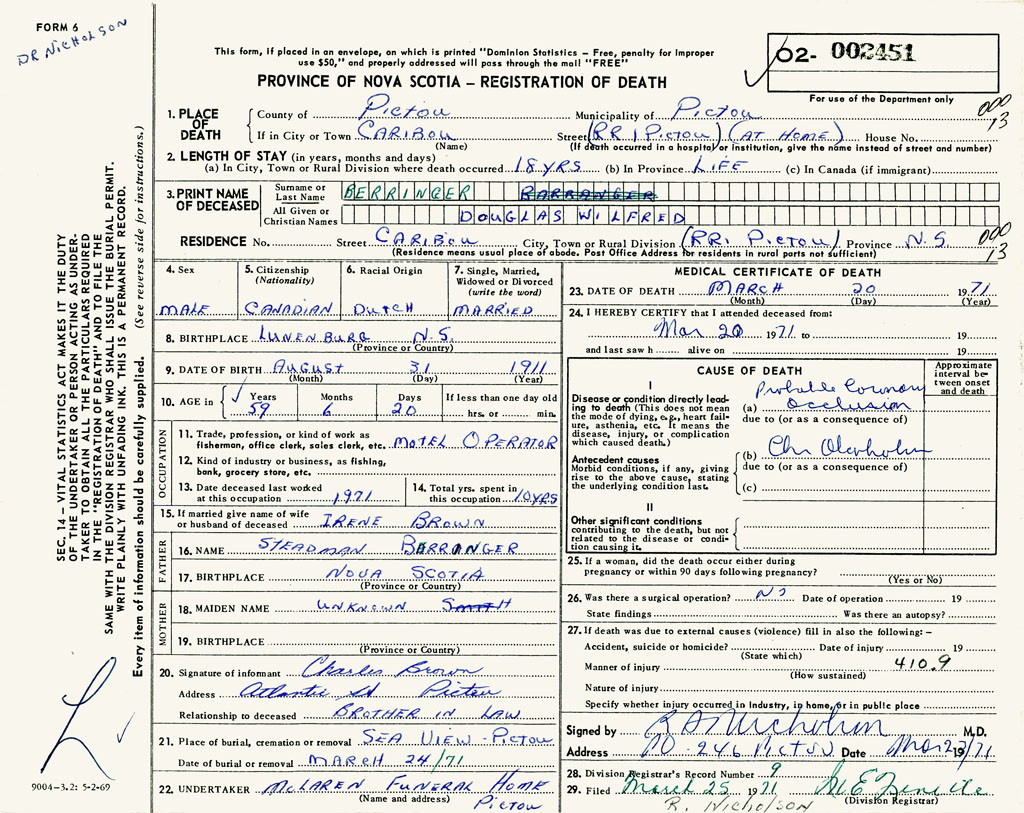 FORM 6
DR NICHOLSON
This form, if placed in an envelope, on which is printed "Dominion Statistics – Free, penalty for improper
use $50," and properly addressed will pass through the mail "FREE"
PROVINCE OF NOVA SCOTIA – REGISTRATION OF DEATH
02- 002451
For use of the Department only
SEC. 14 – VITAL STATISTICS ACT MAKES IT THE DUTY
OF THE UNDERTAKER OR PERSON ACTING AS UNDER-
TAKER TO OBTAIN ALL THE PARTICULARS REQUIRED
IN THE "REGISTRATION OF DEATH" AND TO FILE THE
SAME WITH THE DIVISION REGISTRAR WHO SHALL ISSUE THE BURIAL PERMIT.
WRITE PLAINLY WITH UNFADING INK. THIS IS A PERMANENT RECORD.
Every item of information should be carefully supplied. (See reverse side for instructions.)
1. PLACE OF DEATH
County of Pictou Municipality of Pictou 000 13
If in City or Town CARIBOU Street (RR 1 Pictou) (AT HOME) House No.
(Name) (If death occurred in a hospital or institution, give the name instead of street and number)
2. LENGTH OF STAY (in years, months and days)
(a) In City, Town or Rural Division where death occurred 18 YRS (b) In Province LIFE (c) In Canada (if immigrant)
3. PRINT NAME OF DECEASED
Surname or Last Name BERRINGER BARRANGER
All Given or Christian Names DOUGLAS WILFRED
RESIDENCE No. Street CARIBOU City, Town or Rural Division (RR1 PICTOU) Province N.S. 000 13
(Residence means usual place of abode. Post Office Address for residents in rural parts not sufficient)
4. Sex MALE
5. Citizenship (Nationality) CANADIAN
6. Racial Origin DUTCH
7. Single, Married, Widowed or Divorced (write the word) MARRIED
8. BIRTHPLACE LUNENBURG N.S.
(Province or Country)
9. DATE OF BIRTH AUGUST 31 1911
(Month) (Day) (Year)
10. AGE in Years 59 Months 6 Days 20 If less than one day old hrs. or min.
OCCUPATION
11. Trade, profession, or kind of work as
fishermen, office clerk, sales clerk, etc. MOTEL OPERATOR
12. Kind of industry or business, as fishing,
bank, grocery store, etc.
13. Date deceased last worked at this occupation 1971
14. Total yrs. spent in this occupation 10 YRS
15. If married give name of wife
or husband of deceased IRENE BROWN
FATHER
16. NAME STEADMAN BERRINGER
17. BIRTHPLACE NOVA SCOTIA
(Province or Country)
MOTHER
18. MAIDEN NAME UNKNOWN
19. BIRTHPLACE
(Province or Country)
20. Signature of informant Charles Brown
Address Atlantic St Pictou
Relationship to deceased BROTHER IN LAW
21. Place of burial, cremation or removal SEA VIEW - PICTOU
Date of burial or removal MARCH 24/71
22. UNDERTAKER McLAREN FUNERAL HOME
(Name and address) PICTOU
9004–3.2: 5-2-69
MEDICAL CERTIFICATE OF DEATH
23. DATE OF DEATH MARCH 20 1971
(Month) (Day) (Year)
24. I HEREBY CERTIFY that I attended deceased from:
Mar 20 1971 to 19
and last saw h alive on 19
CAUSE OF DEATH
Approximate interval between onset and death
I
Disease or condition directly leading to death (This does not
mean the mode of dying, e.g., heart failure, asthenia, etc. It means the
disease, injury, or complication which caused death.)
(a) Probable Coronary Occlusion
due to (or as a consequence of)
Antecedent causes
Morbid conditions, if any, giving
rise to the above cause, stating
the underlying condition last.
(b) Chr
due to (or as a consequence of)
(c)
II
Other significant conditions
contributing to the death, but not
related to the disease or condition
causing it.
25. If a woman, did the death occur either during
pregnancy or within 90 days following pregnancy?
(Yes or No)
26. Was there a surgical operation? No Date of operation 19
State findings Was there an autopsy?
27. If death was due to external causes (violence) fill in also the following: –
Accident, suicide or homicide? Date of injury 19
(State which)
Manner of injury 410.9
(How sustained)
Nature of injury
Specify whether injury occurred in industry, in home, or in public place
Signed by Nicholson M.D.
Address 246 PICTOU Date /71
28. Division Registrar's Record Number 9
29. Filed March 25 1971
(Division Registrar)
R. NICHOLSON